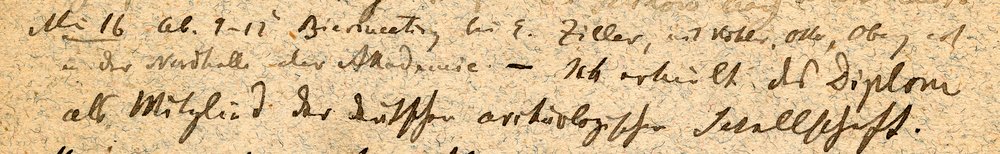 16 Ab. 9-12 Biermeeting bei E. Ziller, mit
in der Nordhalle der Akademie. — Ich erhielt das Diplom
als Mitglied der deutschen archäologischen Gesellschaft.